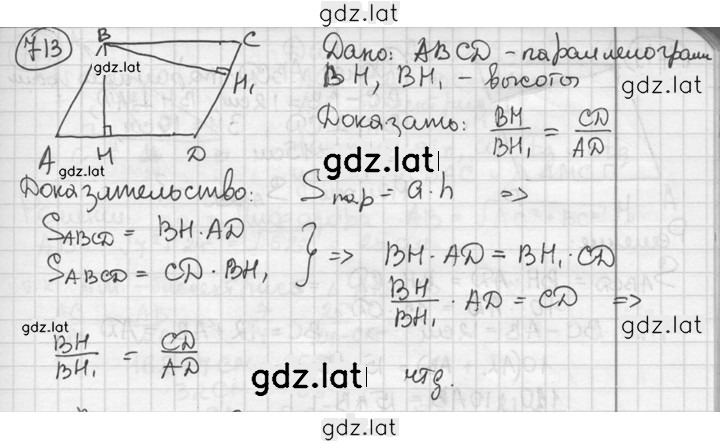 gdz.lat
713
B C
H₁
A H D
gdz.lat
Дано: ABCD - параллелограмм
BH, BH₁ - высоты
gdz.lat
Доказать: BH/BH₁ = CD/AD
gdz.lat
Доказательство: Sпар = a·h =>
S_ABCD = BH·AD
S_ABCD = CD·BH₁ } => BH·AD = BH₁·CD
BH/BH₁ · AD = CD =>
gdz.lat
gdz.lat
BH/BH₁ = CD/AD
gdz.lat
чтд.
gdz.lat